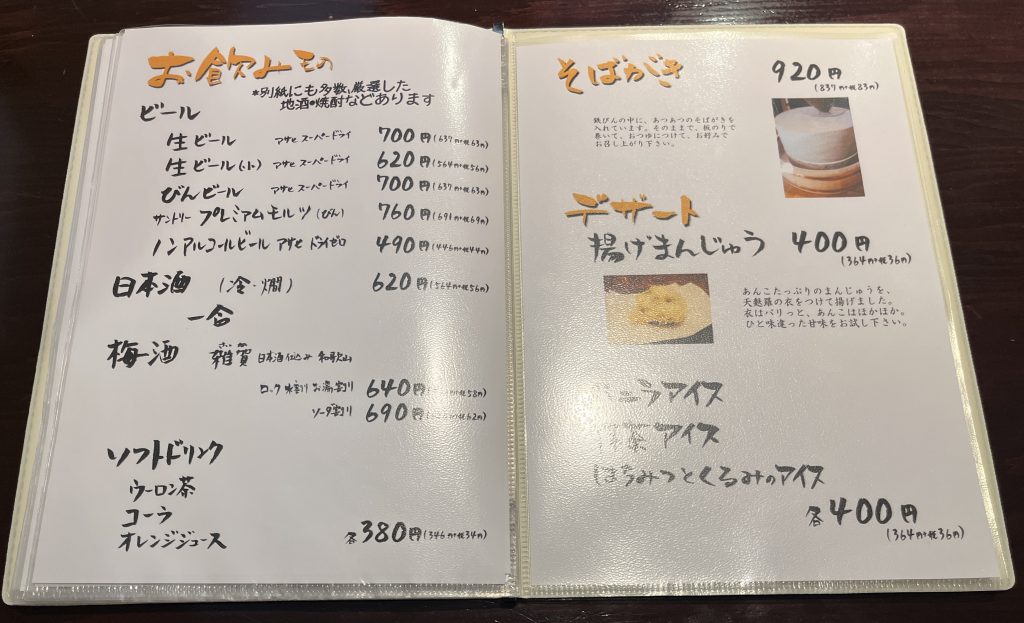 お飲みもの
*別紙にも多数、厳選した
地酒・焼酎などあります
ビール
生ビール アサヒ スーパードライ 700円(637円+税63円)
生ビール(小) アサヒ スーパードライ 620円(564円+税56円)
びんビール アサヒ スーパードライ 700円(637円+税63円)
サントリー プレミアムモルツ(びん) 760円(691円+税69円)
ノンアルコールビール アサヒ ドライゼロ 490円(446円+税44円)
日本酒 (冷・燗) 620円(564円+税56円)
一合
梅酒 雑賀 日本酒仕込み 和歌山
ロック 水割り お湯割り 640円 税58円)
ソーダ割り 690円 税62円)
ソフトドリンク
ウーロン茶
コーラ
オレンジジュース 各380円(346円+税34円)
そばがき 920円
(837円+税83円)
鉄びんの中に、あつあつのそばがきを
入れています。そのままで、板のりで
巻いて、おつゆにつけて、お好みで
お召し上がり下さい。
デザート
揚げまんじゅう 400円
(364円+税36円)
あんこたっぷりのまんじゅうを、
天麩羅の衣をつけて揚げました。
衣はパリっと、あんこはほかほか。
ひと味違った甘味をお試し下さい。
バニラアイス
抹茶アイス
はちみつとくるみのアイス
各400円
(364円+税36円)